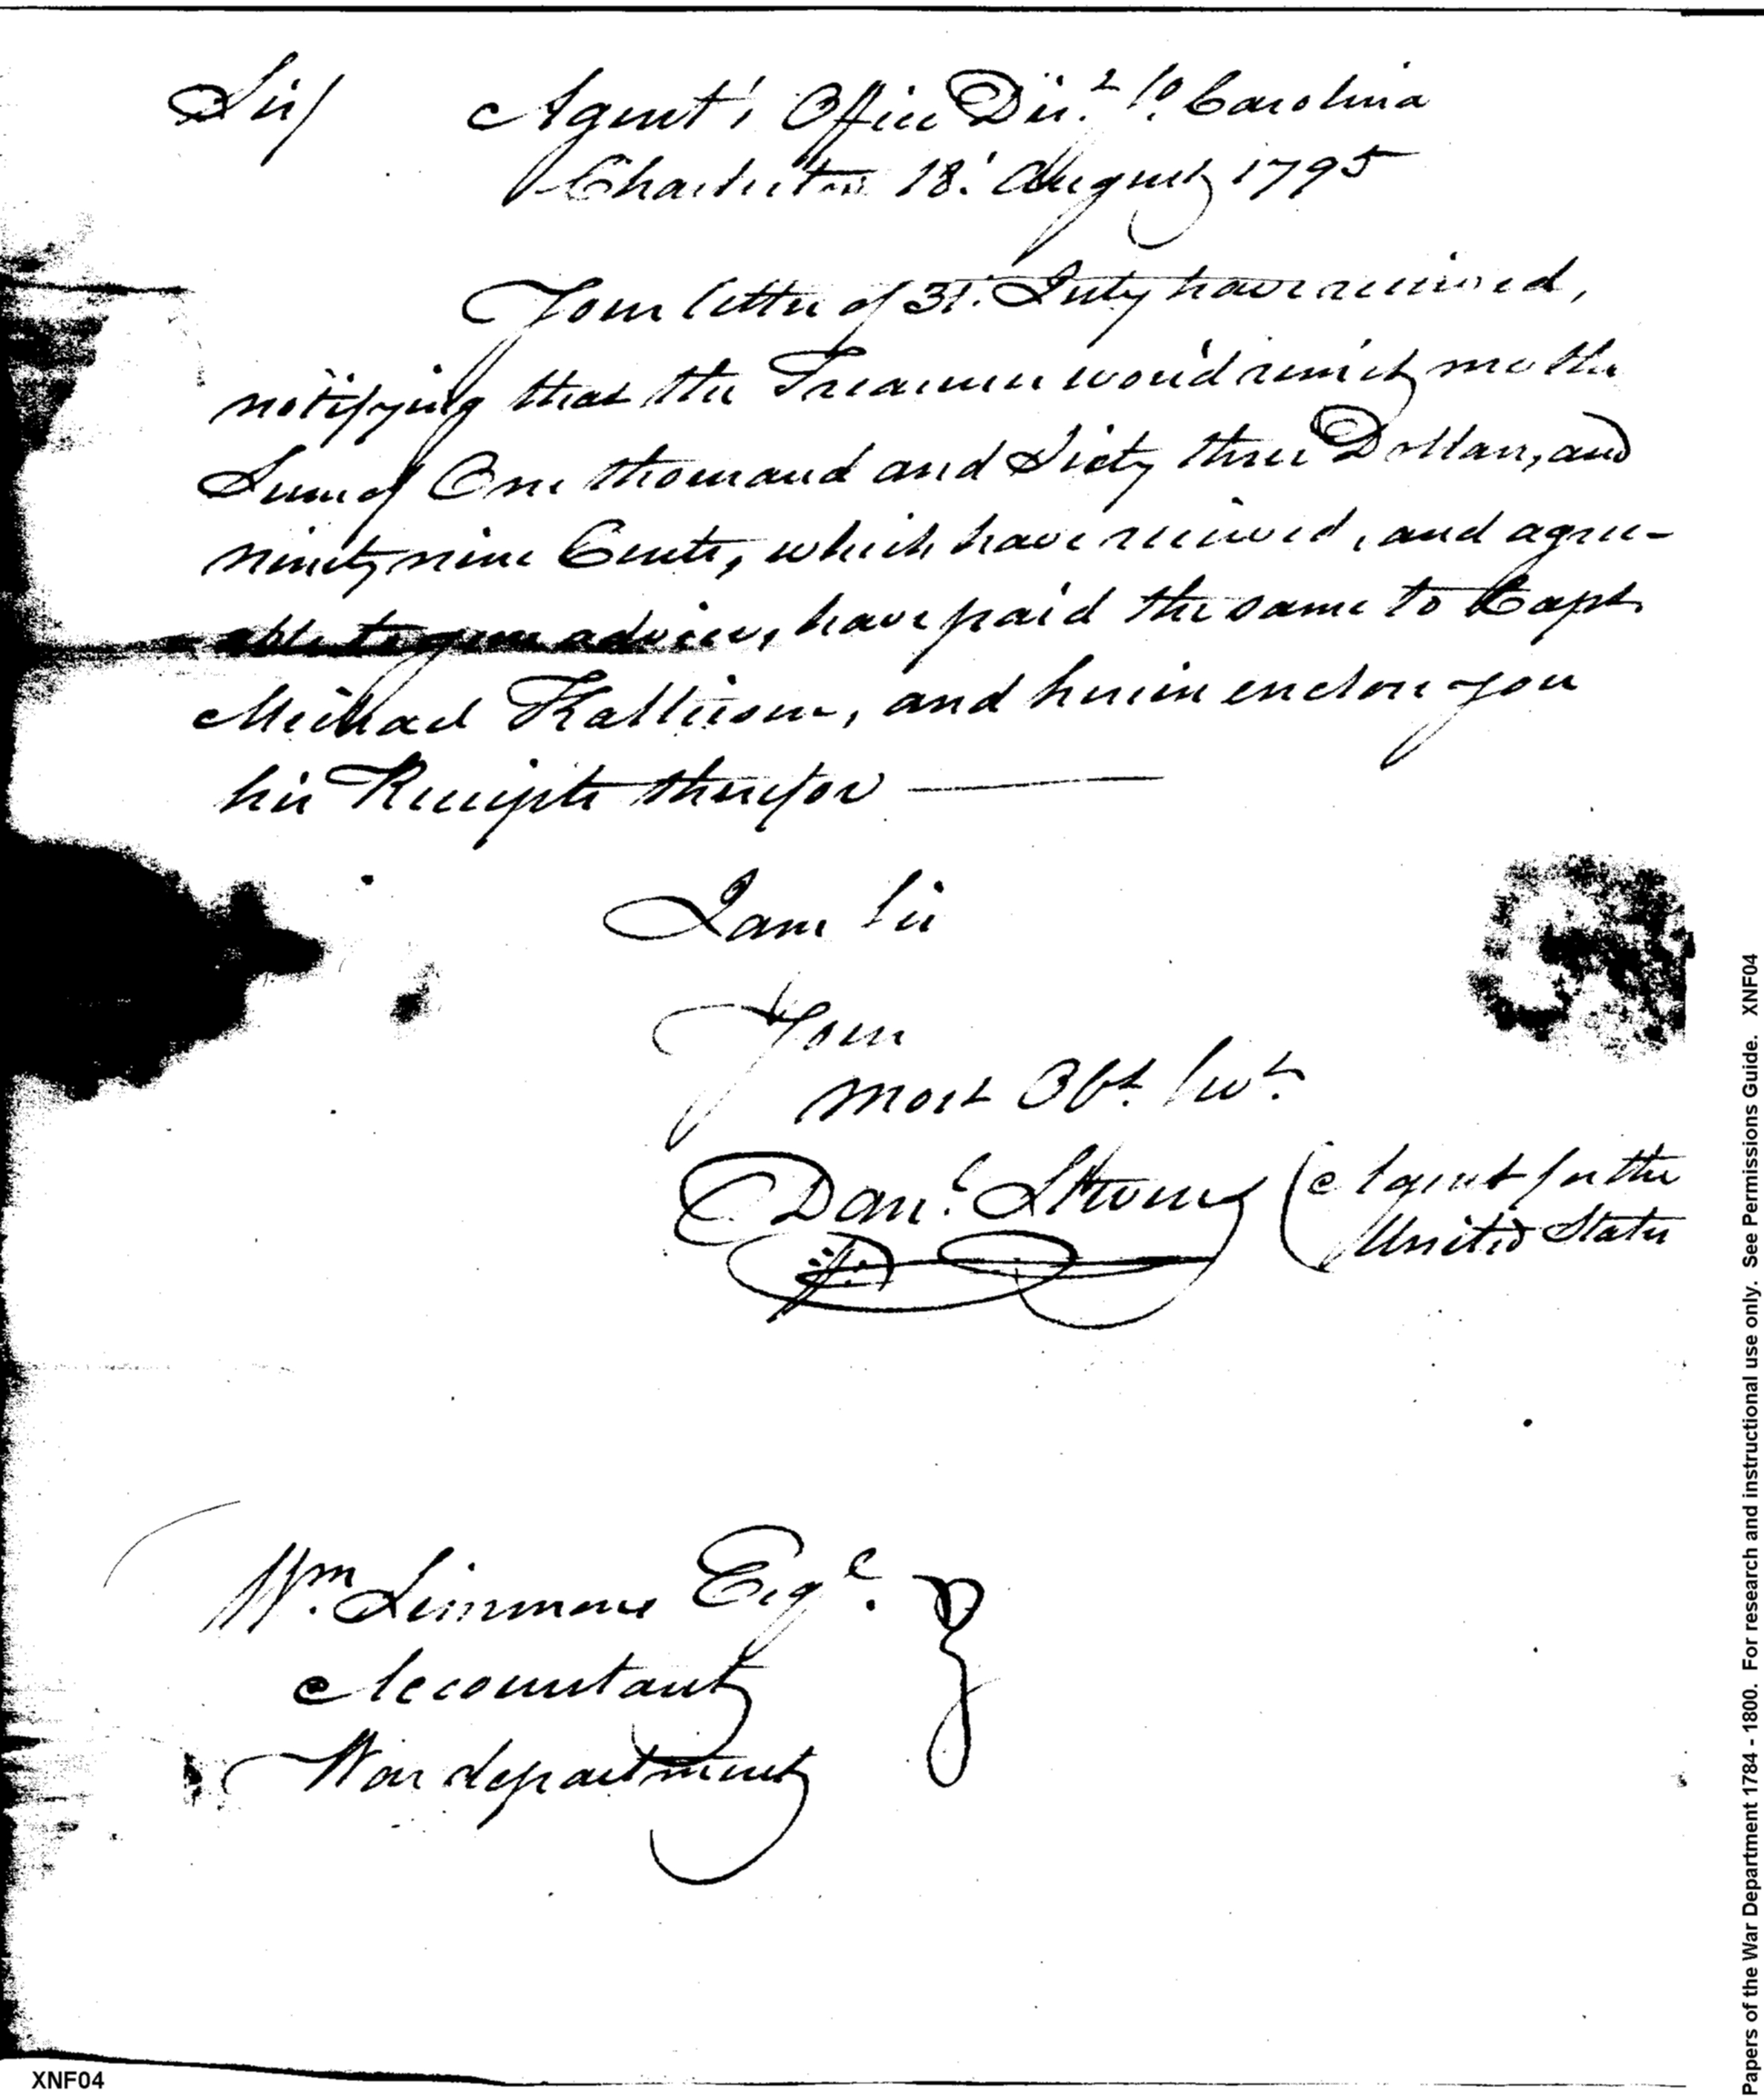 Sir/ Agent's Office Dis.t So. Carolina
Charleston 18.' August 1795
Your letter of 31.' July have received,
notifying that the Treasurer wou'd remit me the
Sum of One thousand and Sixty three Dollars, and
ninety nine Cents, which have received, and agree-
able to your advice, have paid the same to Capt.
Michael Kalteisen, and herein enclose you
his Receipts therefor
I am Sir
Your
most Obt. Svt.
Danl. Stevens Agent for the
United States
Wm. Simmons Esqe.
Accountant
War department
XNF04
Papers of the War Department 1784 - 1800. For research and instructional use only. See Permissions Guide. XNF04